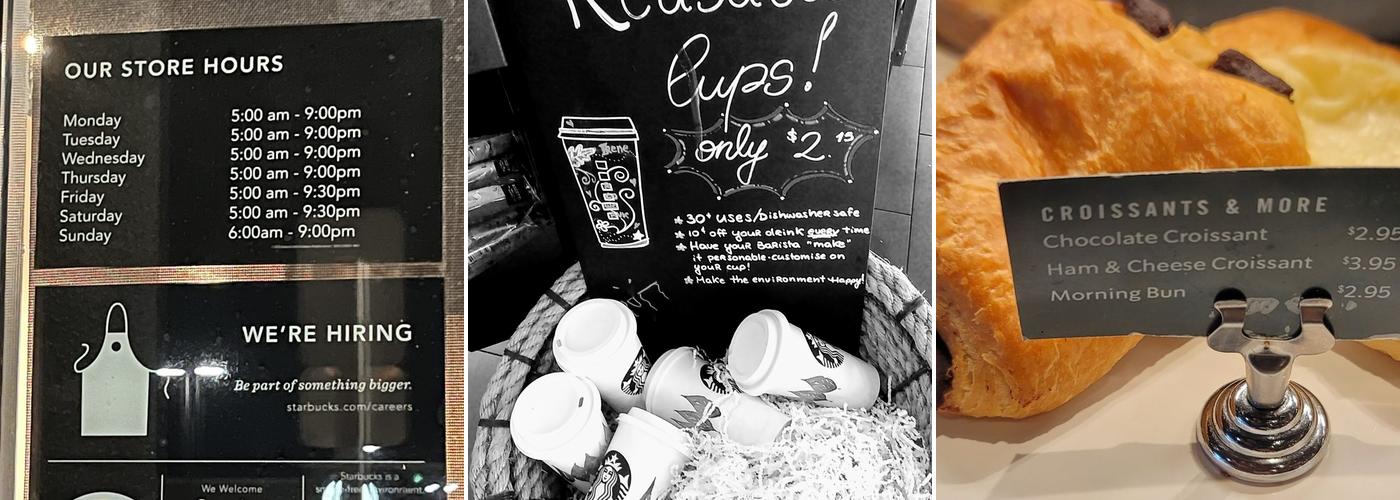 OUR STORE HOURS
Monday 5:00 am - 9:00pm
Tuesday 5:00 am - 9:00pm
Wednesday 5:00 am - 9:00pm
Thursday 5:00 am - 9:00pm
Friday 5:00 am - 9:30pm
Saturday 5:00 am - 9:30pm
Sunday 6:00am - 9:00pm
WE'RE HIRING
Be part of something bigger.
starbucks.com/careers
We Welcome
Starbucks is a
Reusable
Cups!
only $2.15
* 30+ uses/dishwasher safe
* 10¢ off your drink every time
* Have your Barista "make"
it personable-customise on
your cup!
* Make the environment Happy!
CROISSANTS & MORE
Chocolate Croissant $2.95
Ham & Cheese Croissant $3.95
Morning Bun $2.95